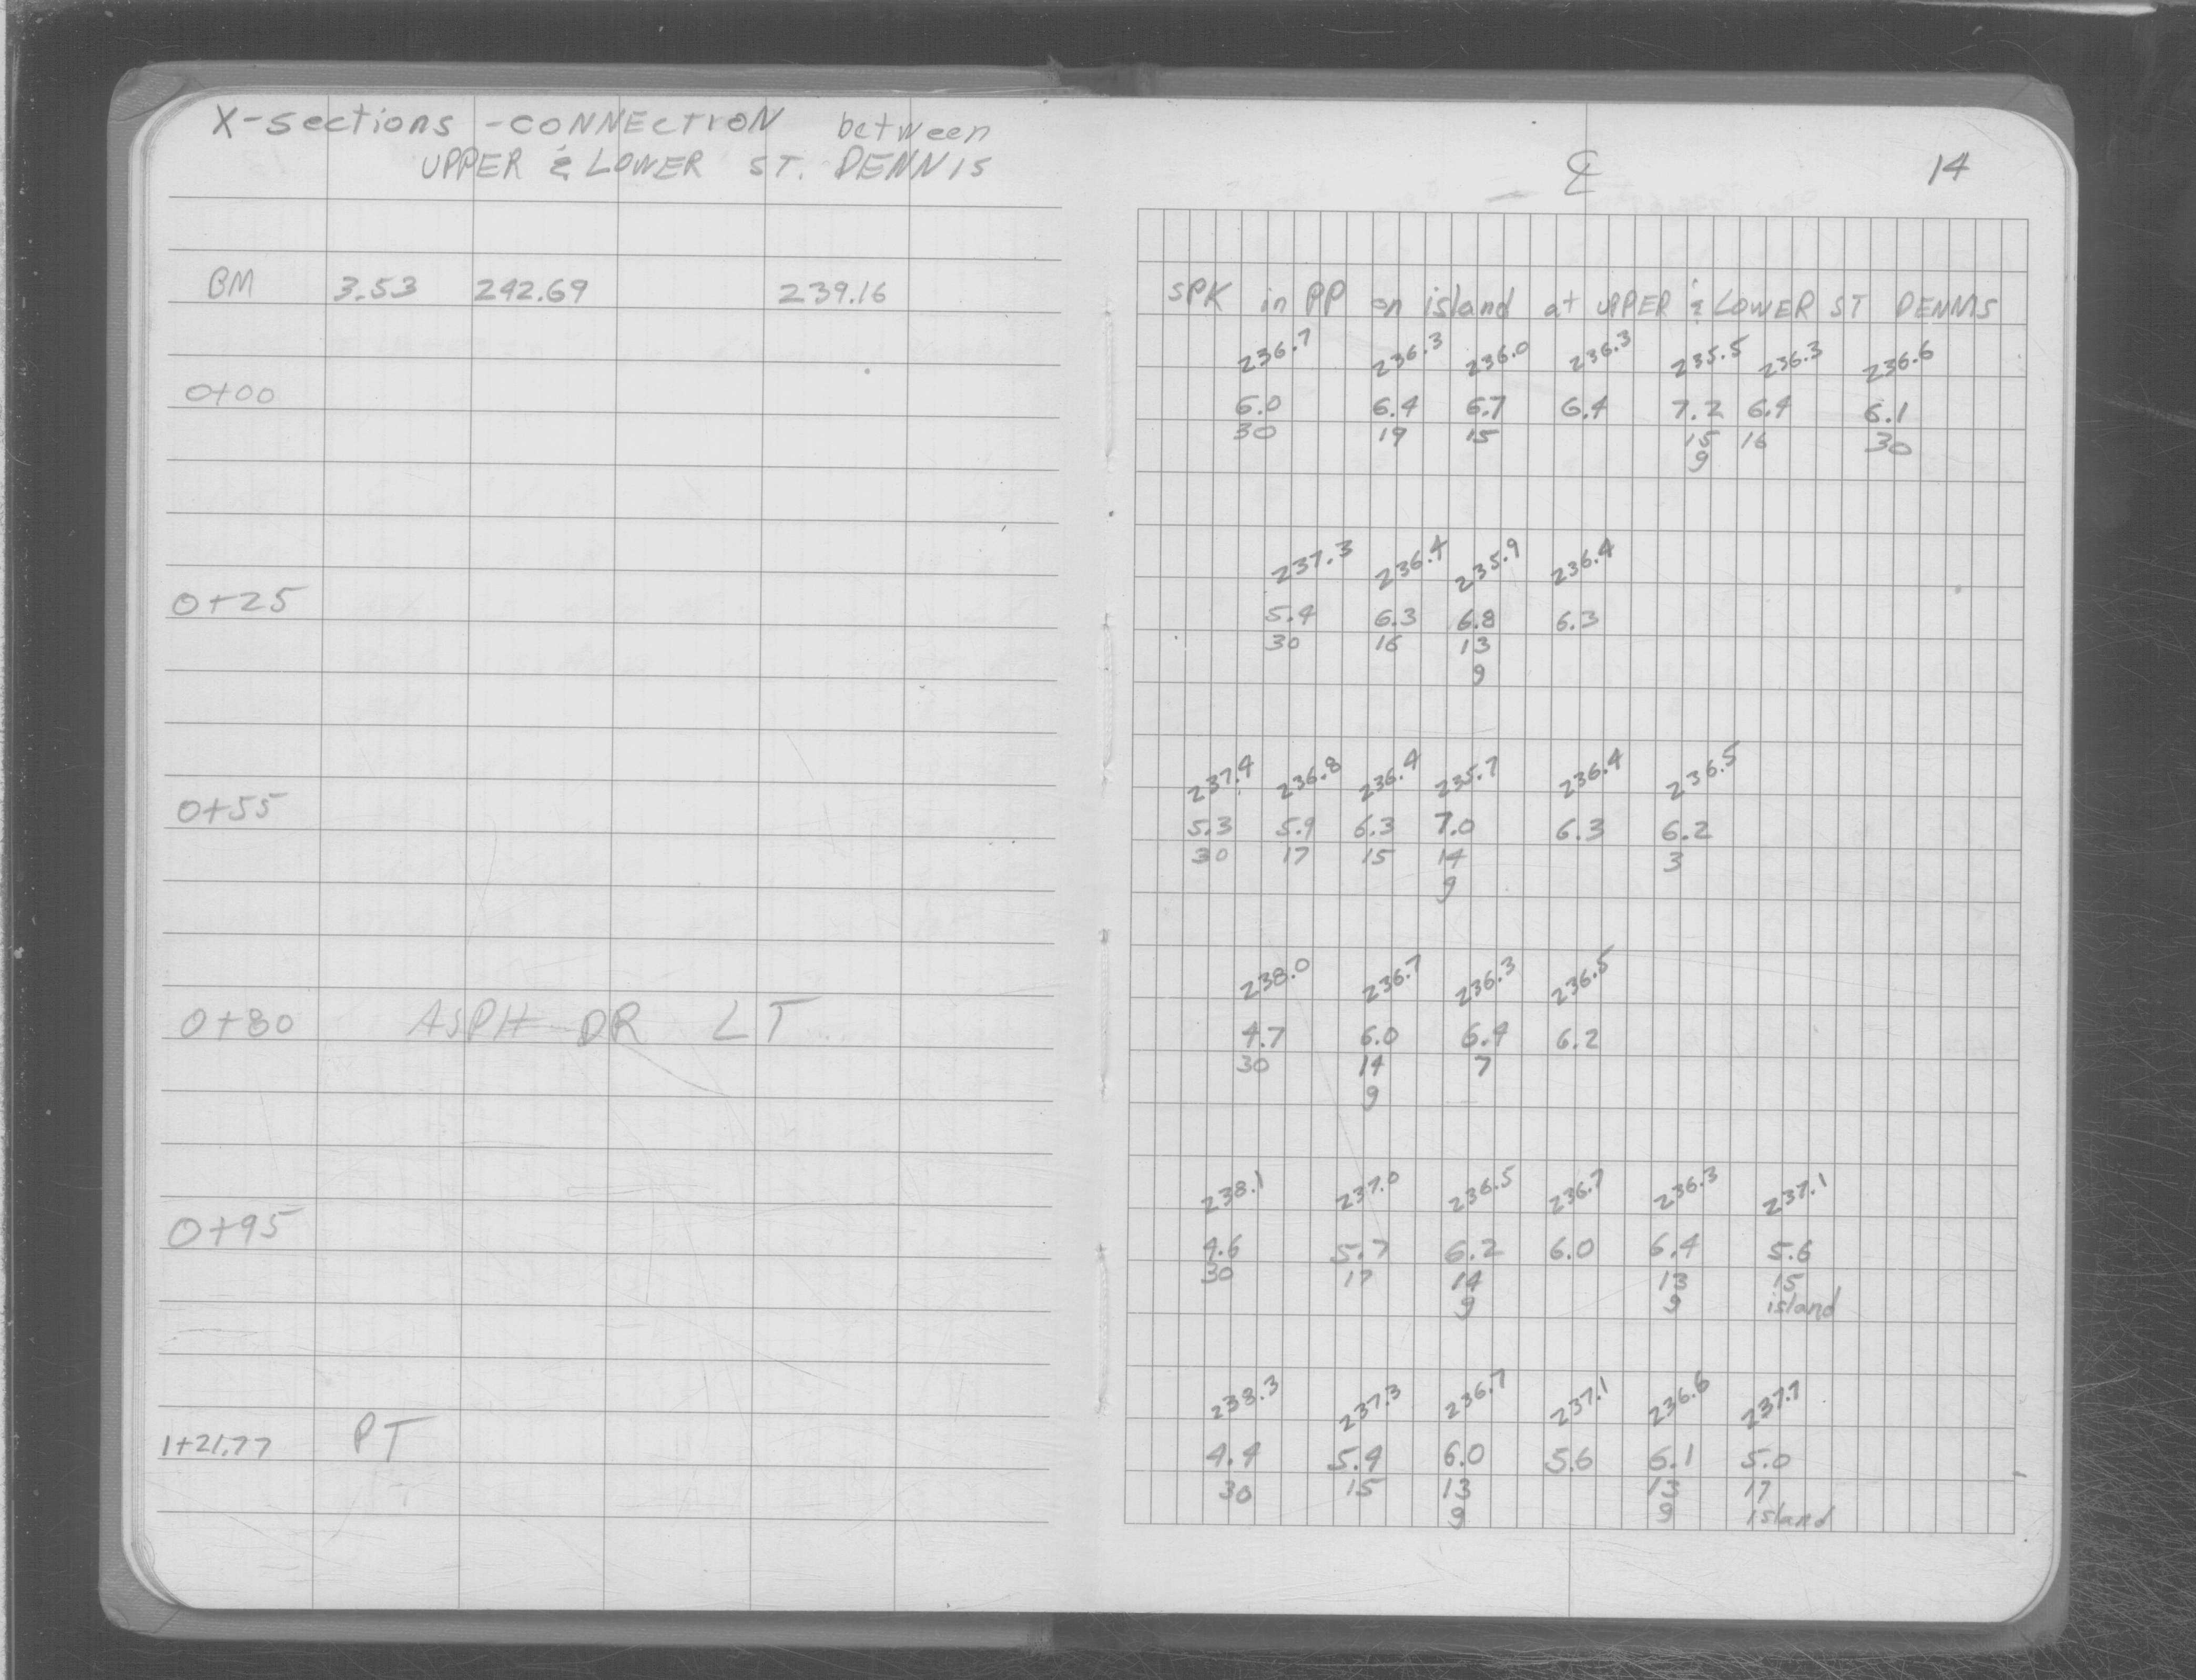 X-sections - CONNECTION between
UPPER & LOWER ST. DENNIS
℄ 14
BM 3.53 242.69 239.16 SPK in PP on island at UPPER & LOWER ST DENNIS
236.7 236.3 236.0 236.3 235.5 236.3 236.6
0+00 6.0 6.4 6.7 6.4 7.2 6.4 6.1
30 19 15 15 16 30
9
237.3 236.4 235.9 236.4
0+25 5.4 6.3 6.8 6.3
30 16 13
9
237.4 236.8 236.4 235.7 236.4 236.5
0+55 5.3 5.9 6.3 7.0 6.3 6.2
30 17 15 14 3
9
238.0 236.7 236.3 236.5
0+80 ASPH DR LT 4.7 6.0 6.4 6.2
30 14 7
9
238.1 237.0 236.5 236.7 236.3 237.1
0+95 4.6 5.7 6.2 6.0 6.4 5.6
30 17 14 13 15
9 9 island
238.3 237.3 236.7 237.1 236.6 237.7
1+21.77 PT 4.4 5.4 6.0 5.6 6.1 5.0
30 15 13 13 17
9 9 island